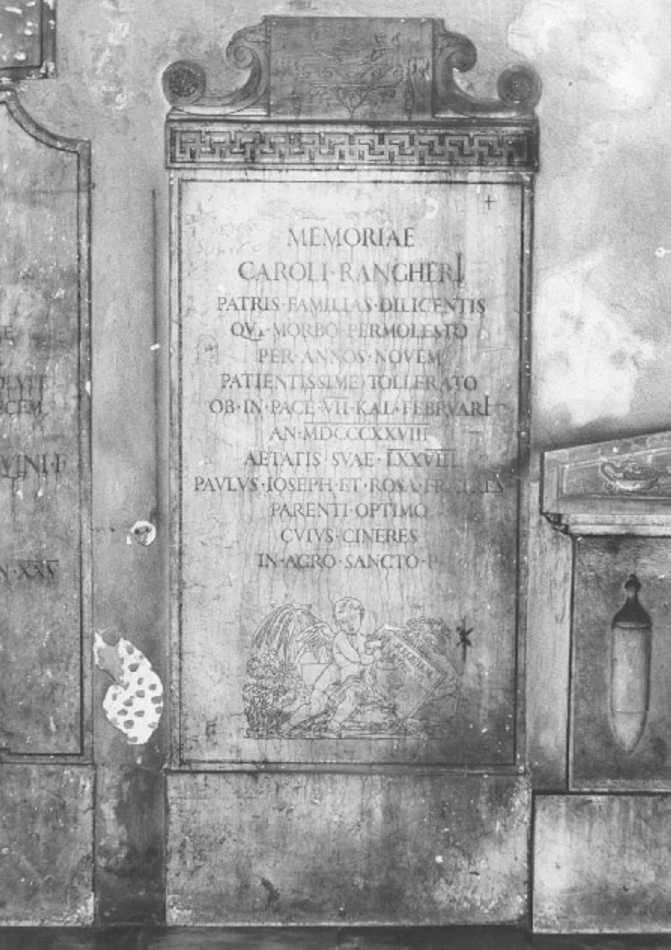 MEMORIAE
CAROLI·RANGHERI
PATRIS·FAMILIAS·DILIGENTIS
QVI·MORBO·PERMOLESTO
PER·ANNOS·NOVEM
PATIENTISSIME·TOLLERATO
OB·IN·PACE·VII·KAL·FEBRVARI
AN·MDCCCXXVIII
AETATIS·SVAE·LXXVIII
PAVLVS·IOSEPH·ET·ROSA·FRATRES
PARENTI·OPTIMO
CVIVS·CINERES
IN·AGRO·SANCTO·P
VINI·F